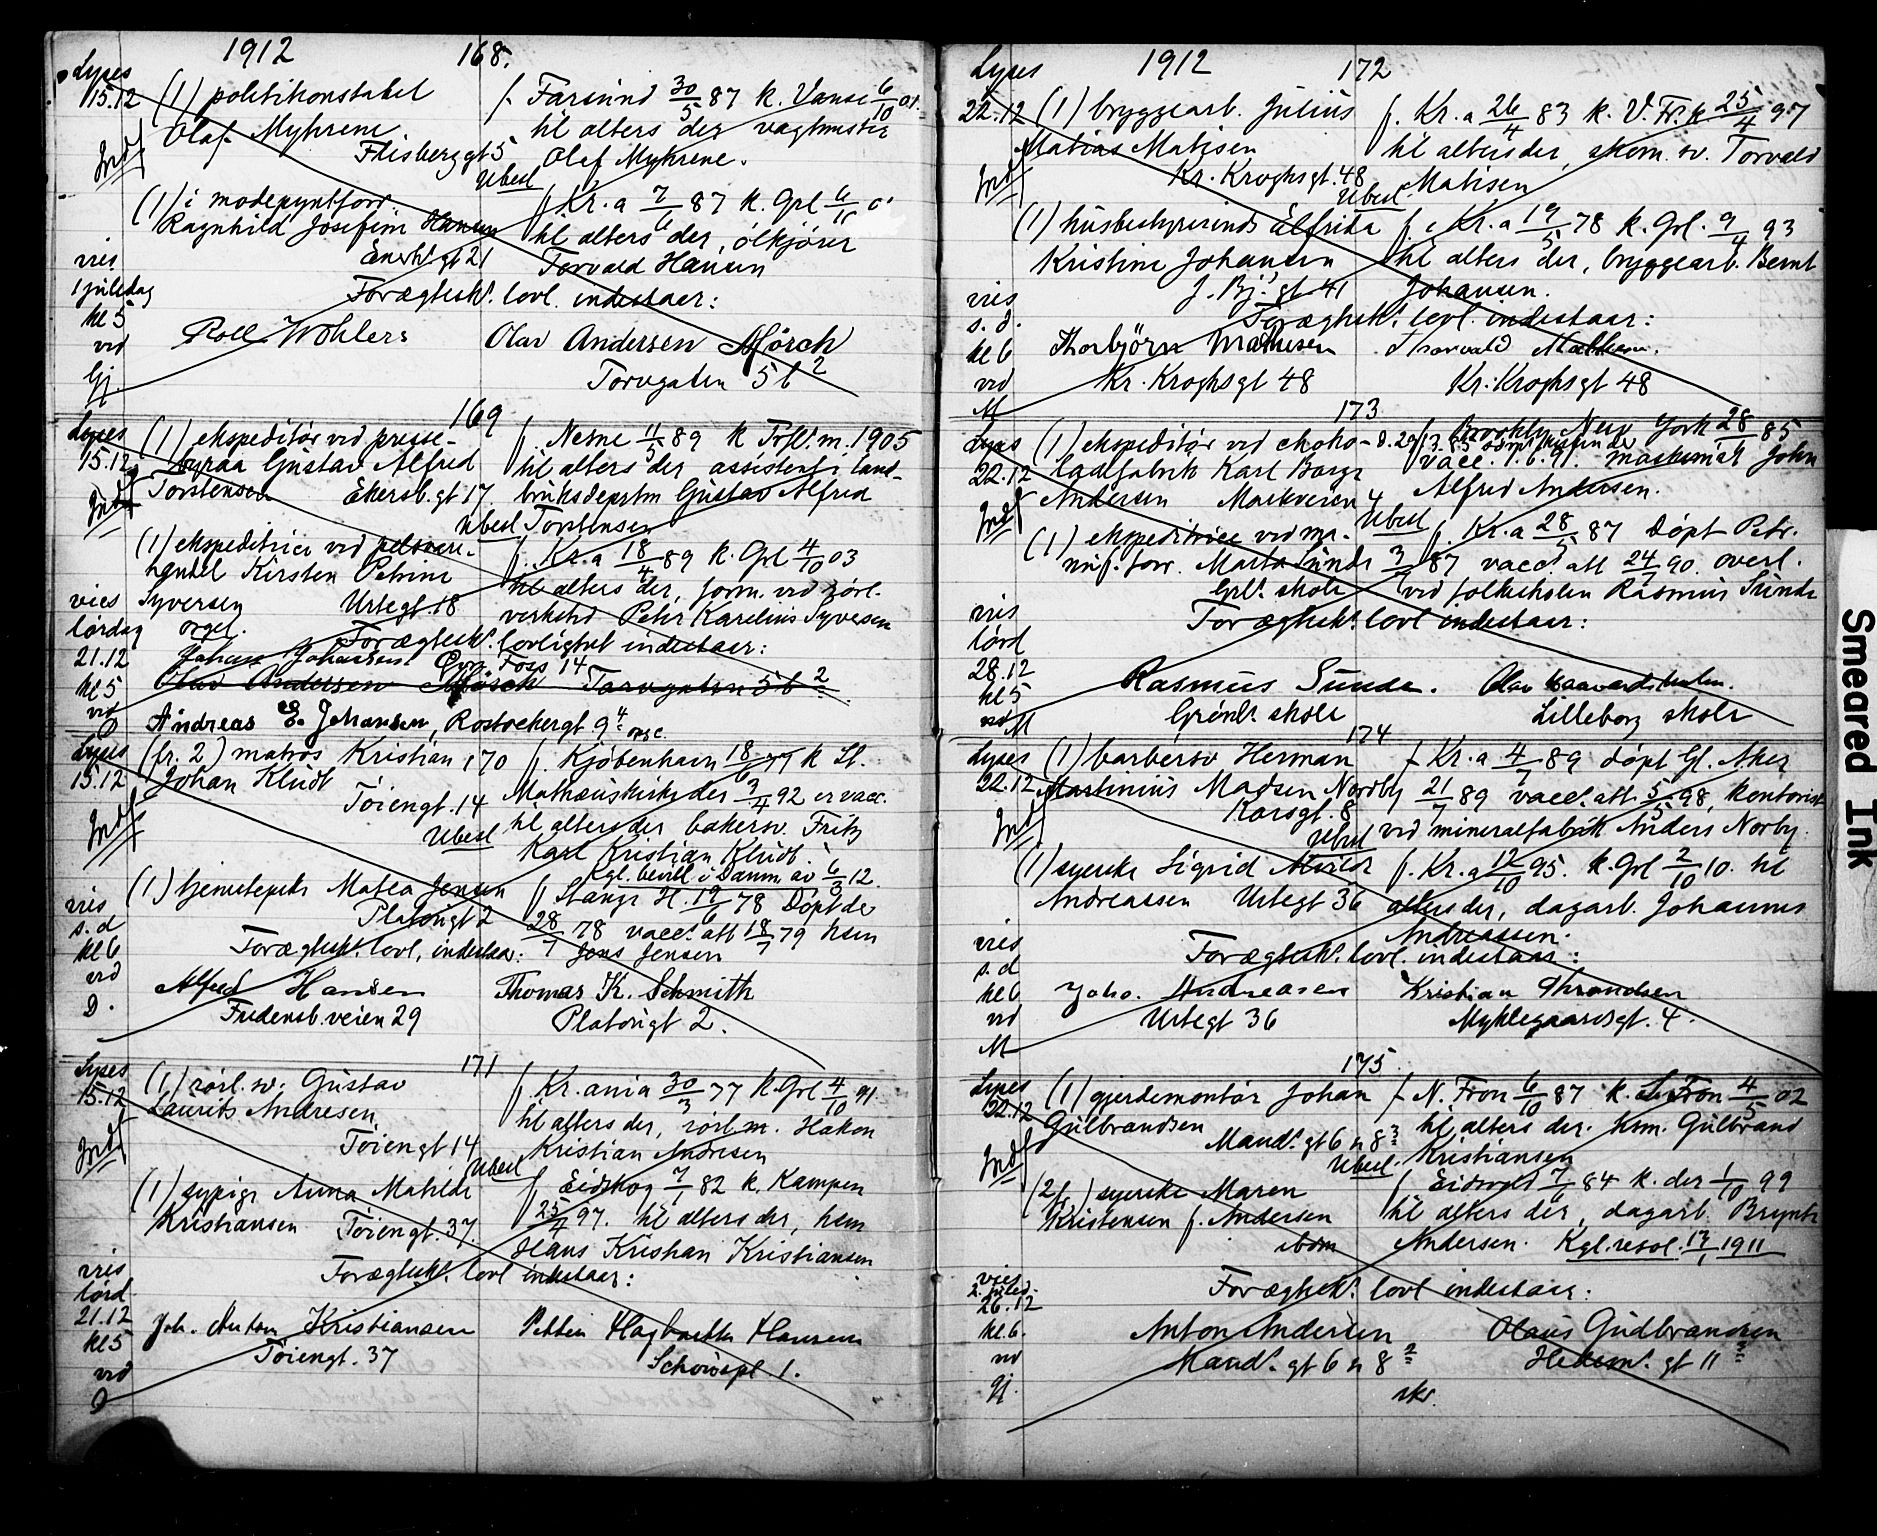 1912
168.
Lyses
15.12 (1) politikonstabel
Olaf Myhrene
Flisberggt 5
f. Farsund 30/5 87 k. Vanse 6/10 01.
til alters der vagtmester
Olaf Myhrene.
Ubesl
(1) i modepyntforr.
Ragnhild Josefine Hansen
Enerh. gt 21
f. Kr.a 7/6 87 k. Grl
til alters der, ølkjører
Torvald Hansen
vies
1 juledag
kl 5
vid
Gj.
Forægtesk. lovl. indestaar:
Roll Wøhlers
Olav Andersen Mørch
Torvgaten 5b 2
169
Lyses
15.12
(1) ekspeditør ved presse-
byraa Gustav Alfred
Torstensen Ekersb.gt 17.
f. Nesne 11/5 89 k Trfl. m. 1905
til alters der assistent i land-
bruksdeprtm Gustav Alfred
Ubesl Torstensen
(1) ekspeditrice ved pelsvare-
handel Kirsten Petrine
Syversen Urtegt. 18
f. Kr.a 18/4 89 k. Grl 4/10 03
til alters der, form. ved
verksted Peter Karelius Syversen
vies
lørdag
21.12
kl 5
vid
Forægtesk. lovlighet indestaar:
orgel.
Johan Johansen Foss 14
Olav Andersen Mørch Torvgaten 5b 2
Andreas E. Johansen, Rostockergt 9 4
170
Lyses
15.12
(fr. 2) matros Kristian
Johan Kludt
Tøiengt. 14
Ubesl
f. Kjøbenhavn 18/6 77 k St.
Mathæuskirke der 3/4 92 er vacc.
til alters der bakersv. Fritz
Karl Kristian Kludt.
Kgl. bevill. i Danm. av 6/3 12.
(1) tjenestepike Matea Jensen
Platousgt 2
f Stange H. 19/6 78 Døpt der
28/7 78 vacc. att 18/7 79 hsm
Jens Jensen
vies
s. d
kl 6
vid
D.
Forægtesk. lovl. indestaar:
Alfred Hansen
Fredensb.veien 29
Thomas K. Schmith
Platousgt 2.
171
Lyses
15.12
(1) rørl.sv. Gustav
Laurits Andresen
Tøiengt 14
f. Kr.ania 30/3 77 k. Grl 4/10 91
til alters der, rørl m. Hakon
Kristian Andresen
Ubesl
(1) sypige Anna Matilde
Kristiansen Tøiengt. 37.
f Eidskog 7/1 82 k. Kampen
25/4 97. til alters der, hsm
Hans Kristian Kristiansen
vies
lørd.
21.12
kl 5
vid
Forægtesk. lovl indestaar:
Joh. Anton Kristiansen
Tøiengt. 37
Petter Hagbarth Hansen
Schousspl. 1.
1912
172
Lyses
22.12 (1) bryggearb. Julius
Matias Matisen
Kr. Kroghsgt. 48
f. Kr.a 26/4 83 k. V. Fr. k 25/4 97
til alters der, skom. sv. Torvald
Matisen
Ubesl.
(1) husbestyrerinde Elfrida
Kristine Johansen
J. Bj. gt 41
f. Kr.a 19/5 78 k. Grl. 9/4 93
til alters der, bryggearb. Bernt
Johansen.
vies
s. d.
kl 6
vid
M
Forægtesk. lovl. indestaar:
Thorbjörn Mathisen
Kr. Kroghsgt 48
Thorvald Mathisen.
Kr. Kroghsgt 48
173
Lyses
22.12
(1) ekspeditør ved choko-
ladefabrik Karl Borge
Andersen Markveien 4
f. Brookly New York 28/1 85
d. 29/3 85
vacc. 1.6.91. John
Alfred Andersen.
Ubesl
(1) ekspeditrice ved ma-
nuf. forr. Marta Sunde
Grl. skole
f. Kr.a 28/5 87 Døpt Petr.
3/7 87 vacc. att 24/7 90. overl.
ved folkeskolen Rasmus Sunde
vies
lørd
28.12
kl 5
vid M
Forægtesk. lovl indestaar:
Rasmus Sunde.
Grønl. skole
Lilleborg skole
174
Lyses
22.12
(1) barbersv Herman
Martinius Madsen Nordby
Korsgt. 8
f Kr.a 4/7 89 døpt Gl. Aker
21/7 89 vacc. att. 5/5 98, kontorist
ved mineralfabrik Anders Norby.
Ubesl
(1) syerske Sigrid Alvilde
Andreassen Urtegt 36
f. Kr.a 12/10 95. k. Grl 2/10 10. til
alters der, dagarb. Johannes
Andreassen.
vies
s. d
kl 6
vid
M
Forægtesk. lovl. indestaar:
Joho. Andreasen
Urtegt 36
Kristian Throndsen
Myklegaardsgt. 4.
175
Lyses
22.12
(1) gjerdemontør Johan
Gulbrandsen
Maud. gt 6 n 8 3
f N. Fron 6/10 87 k. S. Fron 4/5 02
til alters der. hsm. Gulbrand
Ubesl. Kristiansen
(2 f.) syerske Maren
Kristensen f. Andersen
ibdm
f Eidsvold 7/6 84 k. der 1/10 99
til alters der, dagarb. Brynte
Andersen. Kgl. resol. 13/1 1911
vies
2. juled.
26.12
kl. 6.
vid
gj.
Forægtesk. lovl indestaar:
Anton Andersen
Maud. gt 6 n 8 2
Olaus Gudbrandsen
Hedem. gt 11
skr.
Smeared Ink